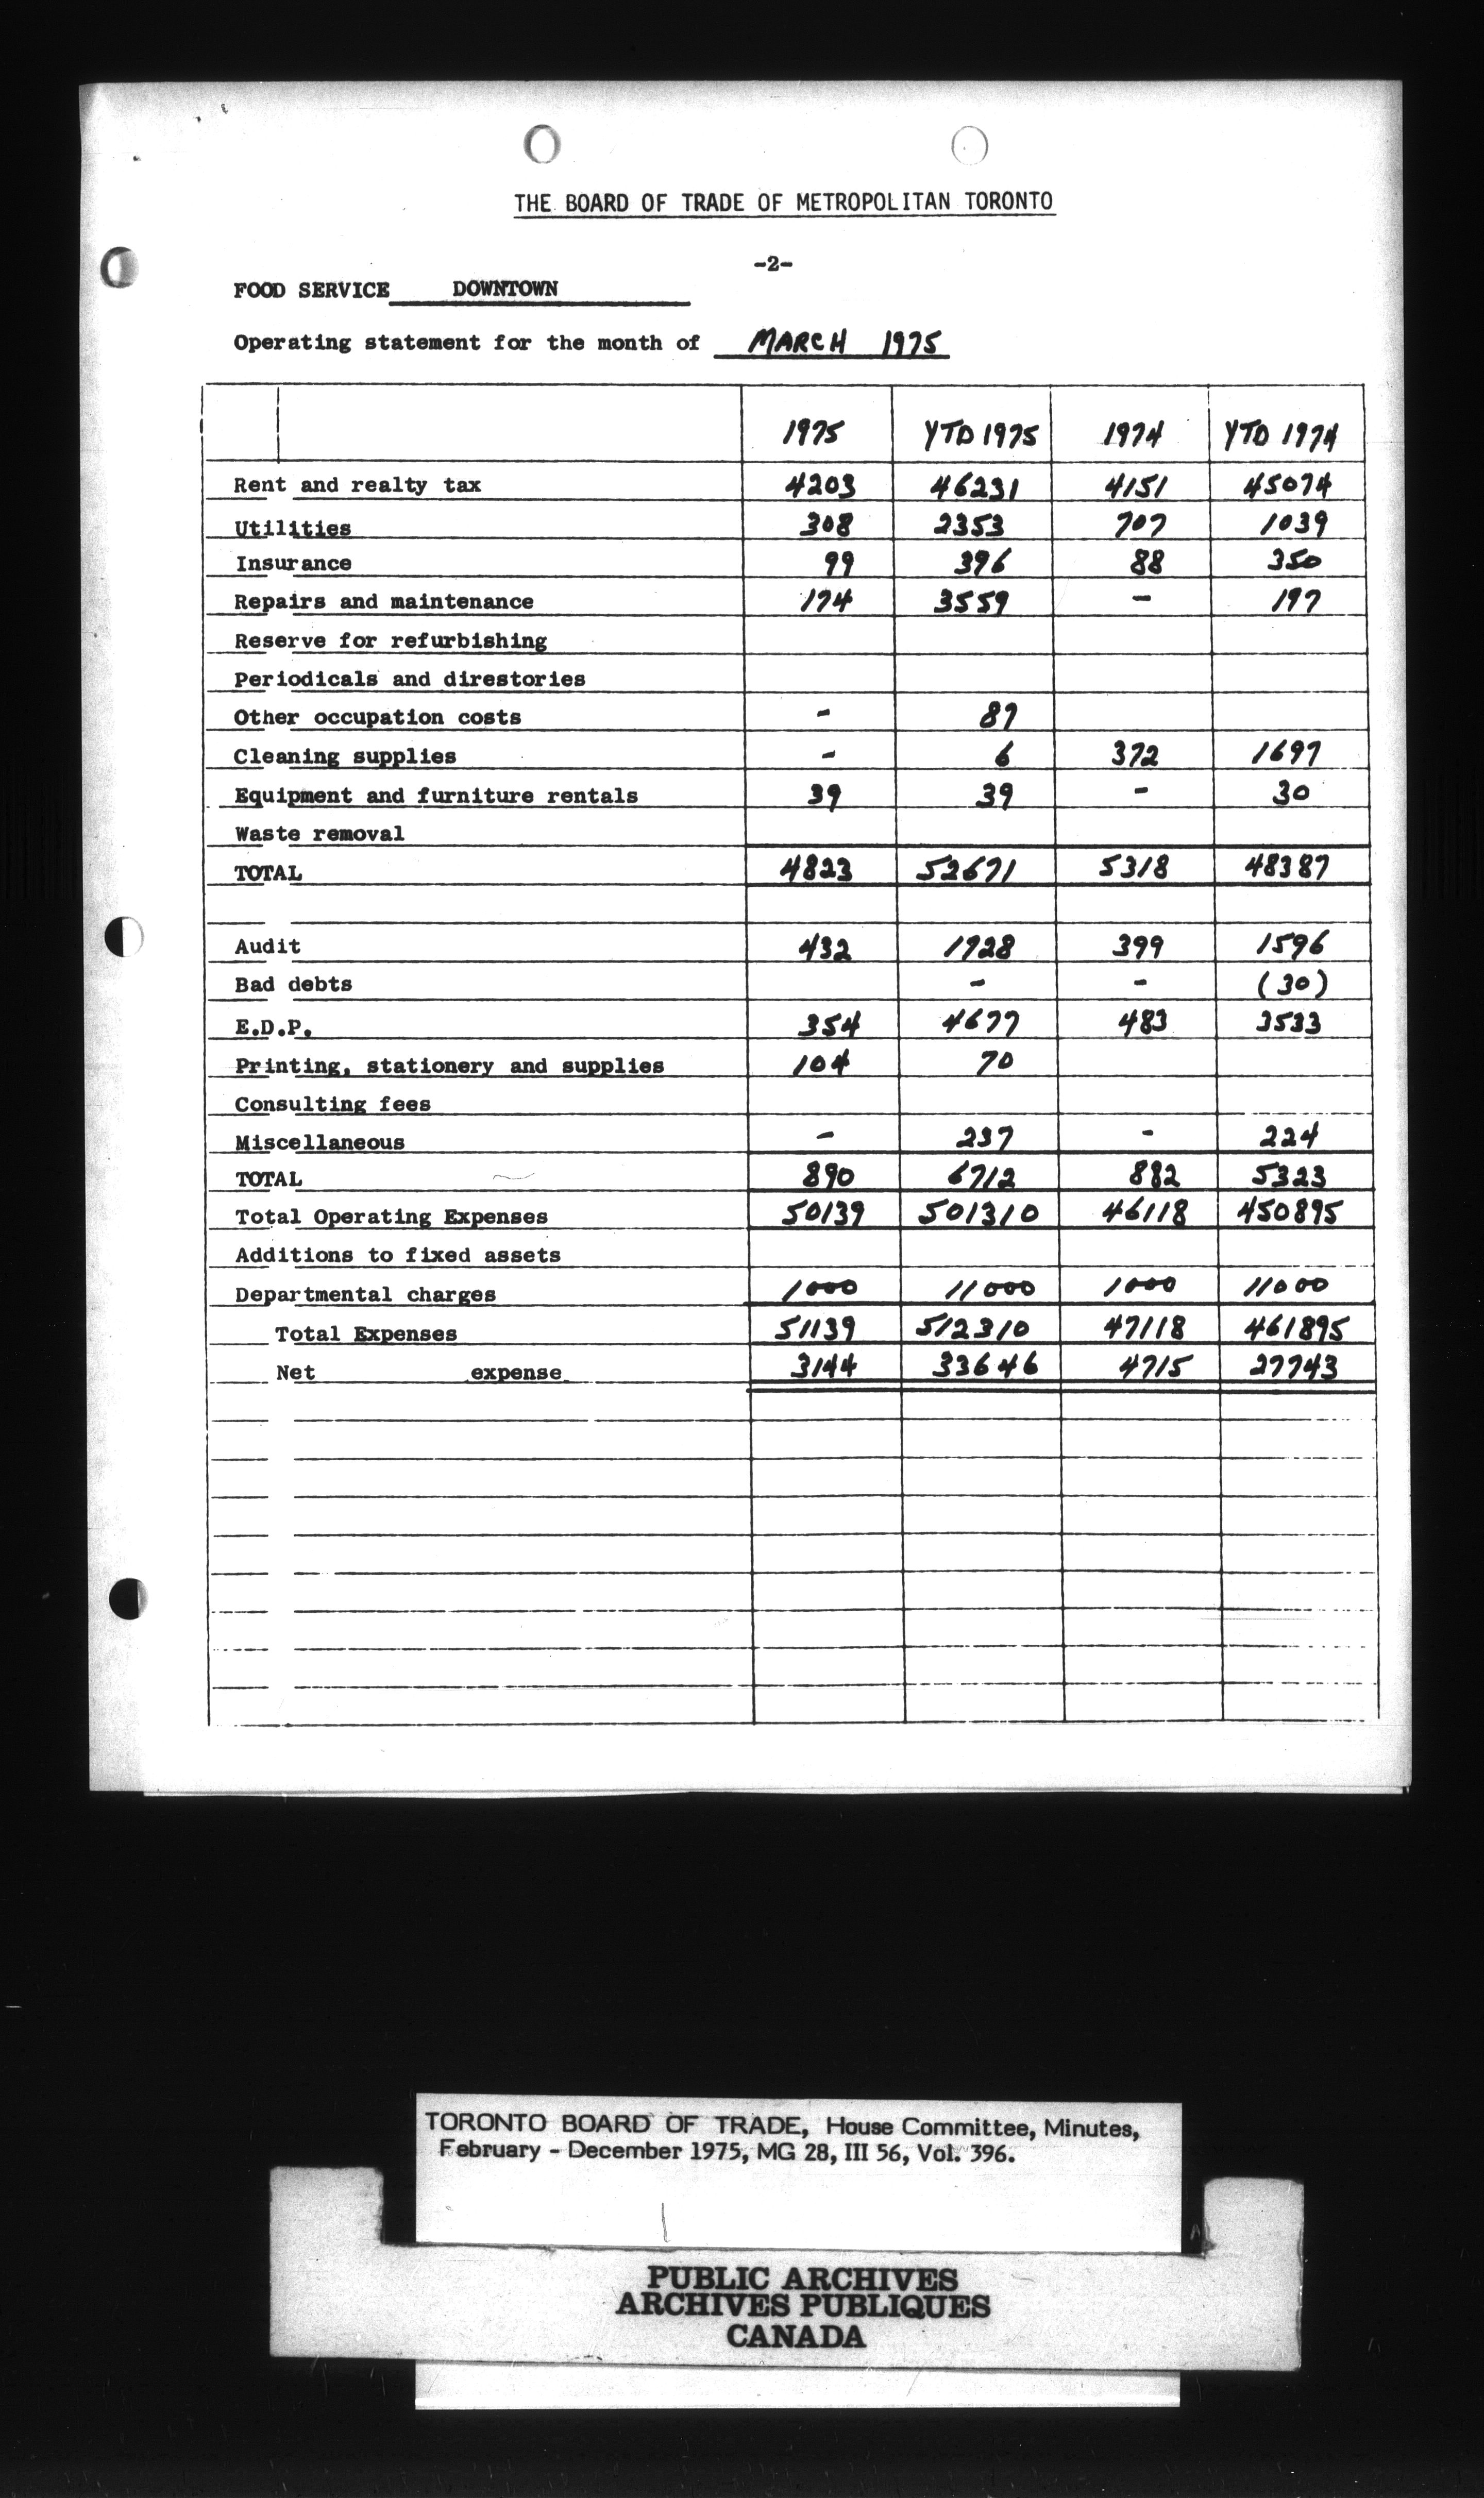 THE BOARD OF TRADE OF METROPOLITAN TORONTO
-2-
FOOD SERVICE DOWNTOWN
Operating statement for the month of MARCH 1975
1975 YTD 1975 1974 YTD 1974
Rent and realty tax 4203 46231 4151 45074
Utilities 308 2353 707 1039
Insurance 99 396 88 350
Repairs and maintenance 174 3559 - 197
Reserve for refurbishing
Periodicals and direstories
Other occupation costs - 87
Cleaning supplies - 6 372 1697
Equipment and furniture rentals 39 39 - 30
Waste removal
TOTAL 4823 52671 5318 48387
Audit 432 1728 399 1596
Bad debts - - (30)
E.D.P. 354 4677 483 3533
Printing, stationery and supplies 104 70
Consulting fees
Miscellaneous - 237 - 224
TOTAL 890 6712 882 5323
Total Operating Expenses 50139 501310 46118 450895
Additions to fixed assets
Departmental charges 1000 11000 1000 11000
Total Expenses 51139 512310 47118 461895
Net expense 3144 33646 4715 27743
TORONTO BOARD OF TRADE, House Committee, Minutes,
February - December 1975, MG 28, III 56, Vol. 396.
PUBLIC ARCHIVES
ARCHIVES PUBLIQUES
CANADA